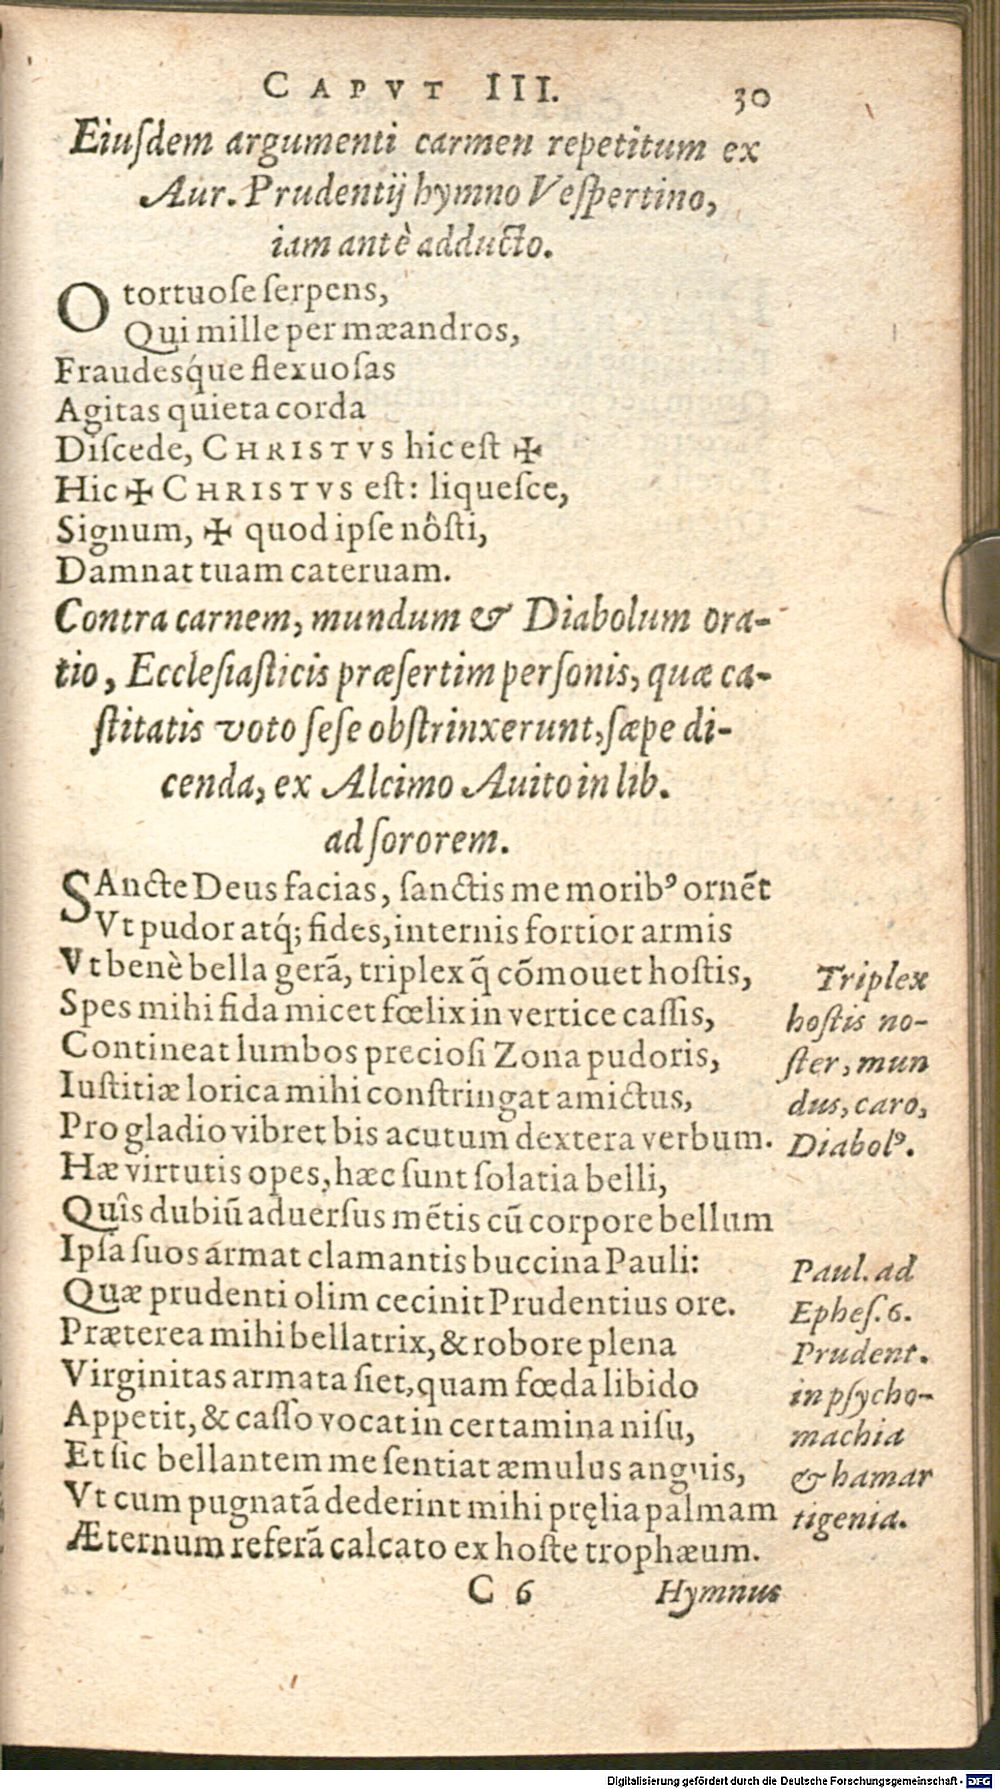 CAPVT III. 30
Eiuſdem argumenti carmen repetitum ex
Aur. Prudentij hymno Veſpertino,
iam antè adducto.
O tortuoſe ſerpens,
Qui mille per mæandros,
Fraudesq́ue flexuoſas
Agitas quieta corda
Diſcede, CHRISTVS hic eſt ✠
Hic ✠ CHRISTVS eſt: liqueſce,
Signum, ✠ quod ipſe nôſti,
Damnat tuam cateruam.
Contra carnem, mundum & Diabolum ora-
tio, Eccleſiaſticis præſertim perſonis, quæ ca-
ſtitatis voto ſeſe obſtrinxerunt, ſæpe di-
cenda, ex Alcimo Auito in lib.
ad ſororem.
SAncte Deus facias, ſanctis me moribꝰ ornēt
Vt pudor atq́; fides, internis fortior armis
Vt benè bella gerā, triplex q̄ cōmouet hoſtis,
Spes mihi fida micet fœlix in vertice caſſis,
Contineat lumbos precioſi Zona pudoris,
Iuſtitiæ lorica mihi conſtringat amictus,
Pro gladio vibret bis acutum dextera verbum.
Hæ virtutis opes, hæc ſunt ſolatia belli,
Quîs dubiū aduerſus mētis cū corpore bellum
Ipſa ſuos armat clamantis buccina Pauli:
Quæ prudenti olim cecinit Prudentius ore.
Præterea mihi bellatrix, & robore plena
Virginitas armata ſiet, quam fœda libido
Appetit, & caſſo vocat in certamina niſu,
Et ſic bellantem me ſentiat æmulus anguis,
Vt cum pugnatā dederint mihi pręlia palmam
Æternum referā calcato ex hoſte trophæum.
Triplex
hoſtis no-
ſter, mun
dus, caro,
Diabolꝰ.
Paul. ad
Epheſ. 6.
Prudent.
in pſycho-
machia
& hamar
tigenia.
C 6 Hymnus
Digitalisierung gefördert durch die Deutsche Forschungsgemeinschaft - DFG